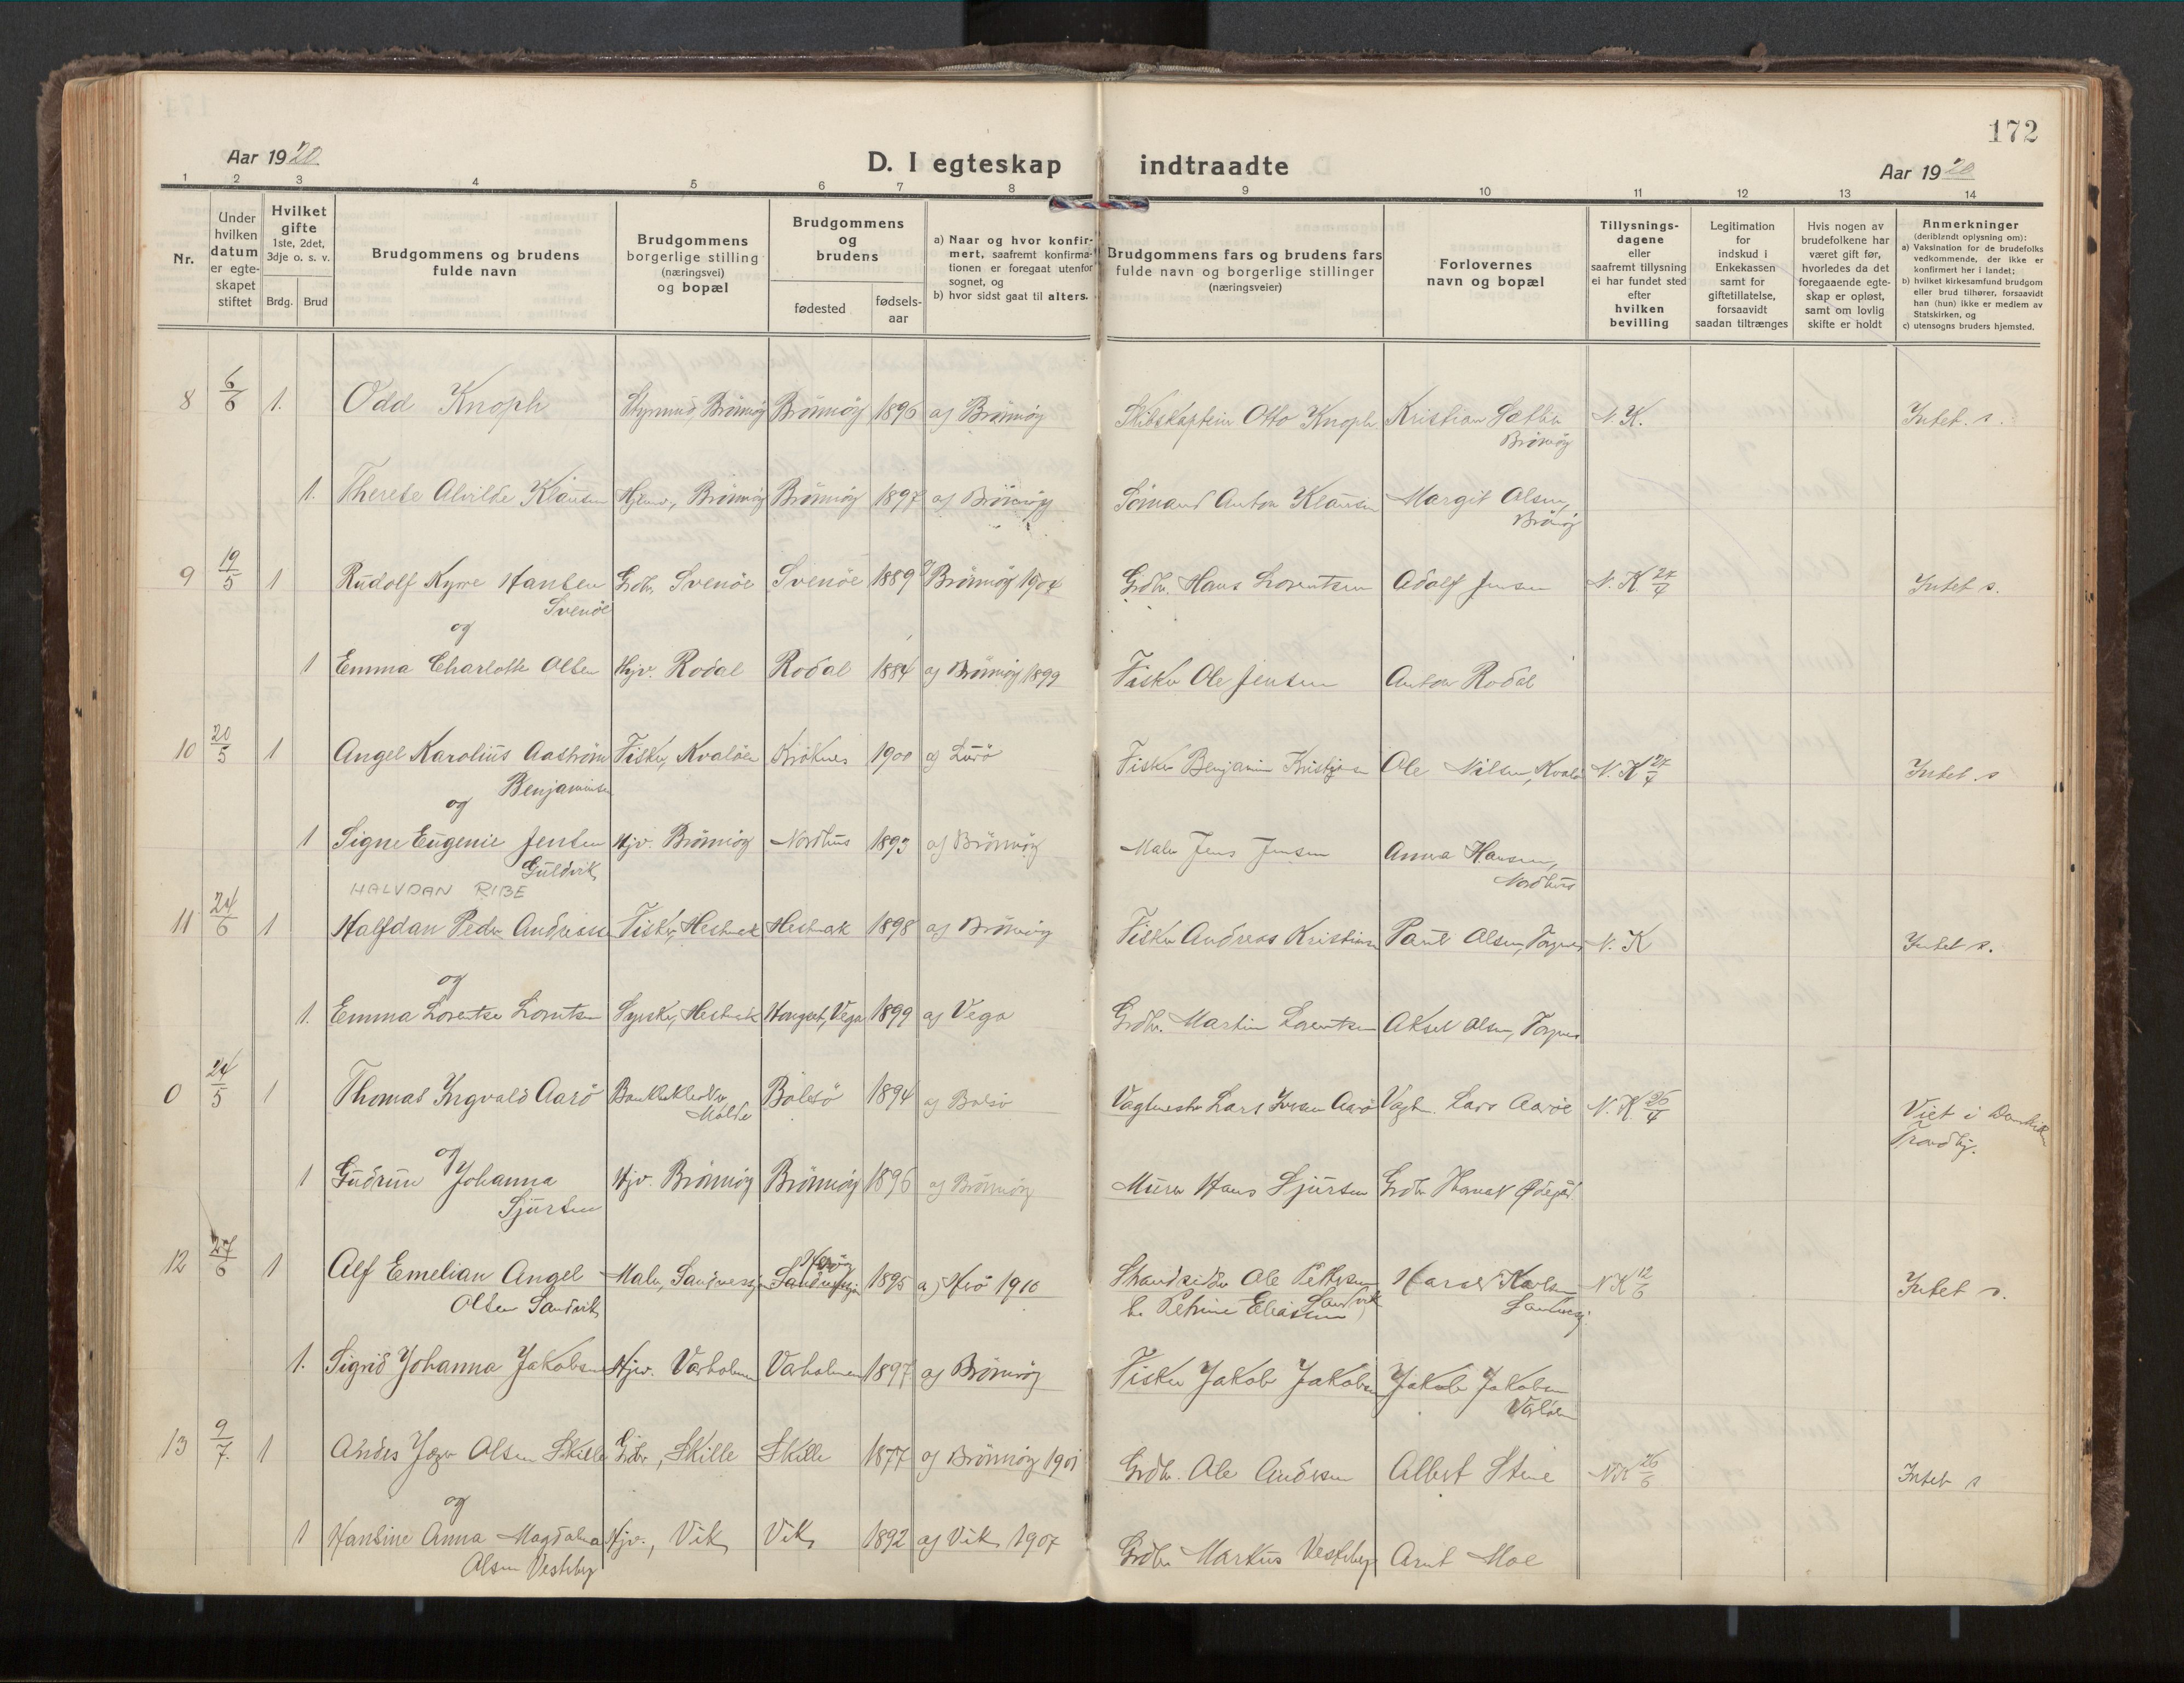 172
Aar 1920
D. I egteskap indtraadte
Aar 1920
1 2 3 4 5 6 7 8 9 10 11 12 13 14
Nr.
Under hvilken datum er egte- skapet stiftet
Hvilket gifte 1ste, 2det, 3dje o. s. v.
Brdg. Brud
Brudgommens og brudens fulde navn
Brudgommens borgerlige stilling (næringsvei) og bopæl
Brudgommens og brudens
fødested
fødsels- aar
a) Naar og hvor konfir- mert, saafremt konfirma- tionen er foregaat utenfor sognet, og
b) hvor sidst gaat til alters.
Brudgommens fars og brudens fars fulde navn og borgerlige stillinger (næringsveier)
Forlovernes navn og bopæl
Tillysnings- dagene eller saafremt tillysning ei har fundet sted efter hvilken bevilling
Legitimation for indskud i Enkekassen samt for giftetillatelse, forsaavidt saadan tiltrænges
Hvis nogen av brudefolkene har været gift før, hvorledes da det foregaaende egte- skap er opløst, samt om lovlig skifte er holdt
Anmerkninger (deriblandt oplysning om):
a) Vaksination for de brudefolks vedkommende, der ikke er konfirmert her i landet;
b) hvilket kirkesamfund brudgom eller brud tilhører, forsaavidt han (hun) ikke er medlem av Statskirken, og
c) utensogns bruders hjemsted.
8 6/6 1. Odd Knoph Styrmand, Brönnöy Brönnöy 1896 a) Brönnöy Skibskaptein Otto Knoph Kristian Sæther Brönnöy N. K. Intet s.
1. Therese Alvilde Klausen Hjemv., Brönnöy Brönnöy 1897 a) Brönnöy Sömand Anton Klausen Margit Olsen, Brönöy
9 19/5 1 Rudolf Kyrre Hansen Svenöe Grdbr. Svenöe Svenöe 1889 a) Brönnöy 1904 Grdbr. Hans Lorentsen Adolf Jensen N. K. 27/4 Intet s.
og
1 Emma Charlotte Olsen Hjv. Rodal Rodal 1884 a) Brönnöy 1899 Fisker Ole Jensen Anton Rodal
10 20/5 1 Angel Karolius Aaström Benjaminsen Fisker, Kvalöen Kröknes 1900 a) Lurö Fisker Benjamin Kristjansen Ole Nilsen, Kvalö N. K 27/4 Intet. s
og
1 Signe Eugenie Jensen Guldvik Hjv. Brönnöy Nordhus 1893 a) Brönnöy Maler Jens Jensen Anna Hansen, Nordhus
HALVDAN RIBE
11 24/6 1 Halfdan Peder Andreassen Fisker, Hestnak Hestnak 1898 a) Brönnöy Fisker Andreas Kristiansen Paul Olsen, Torgnes N. K Intet s.
og
1. Emma Lorentse Lorentsen Syerske, Hestnak Hongset, Vega 1899 a) Vega Grdbr. Martin Lorentsen Aksel Olsen, Torgnes
0 24/5 1 Thomas Ingvald Aarö Molde Bolsö 1894 a) Bolsö Vagtmester Lars Iversen Aarö Vagtm. Lars Aaröe N. K. 26/4 Viet i Domkirken Trondhj.
og
1 Gudrun Johanna Sjursen Hjv. Brönnöy Brönnöy 1896 a) Brönnöy Murer Hans Sjursen Grdbr Thomas Ødegård
12 27/6 1 Alf Emelian Angel Olsen Sandvik Maler, Sandnessjöen Herö Sandnessjöen 1895 a) Herö 1910 Strandsidder Ole Pettersen Sandvik h. Petrine Eliassen Harald Karlsen Sandnessj. N K 12/6 Intet s.
1. Sigrid Johanna Jakobsen Hjv. Varholmen Varholmen 1897 a) Brönnöy Fisker Jakob Jakobsen Jakob Jakobsen
13 9/7. 1 Andes Olsen Skille Grdbr, Skille Skille 1877 a) Brönnöy 1901 Grdbr. Ole Andersen Albert Stene N K 26/6 Intet s
og
1 Hansine Anna Magdalena Olsen Vesteberg Hjv., Vik Vik 1892 a) Vik 1907 Grdbr Markus Vesteberg Arnt Moe